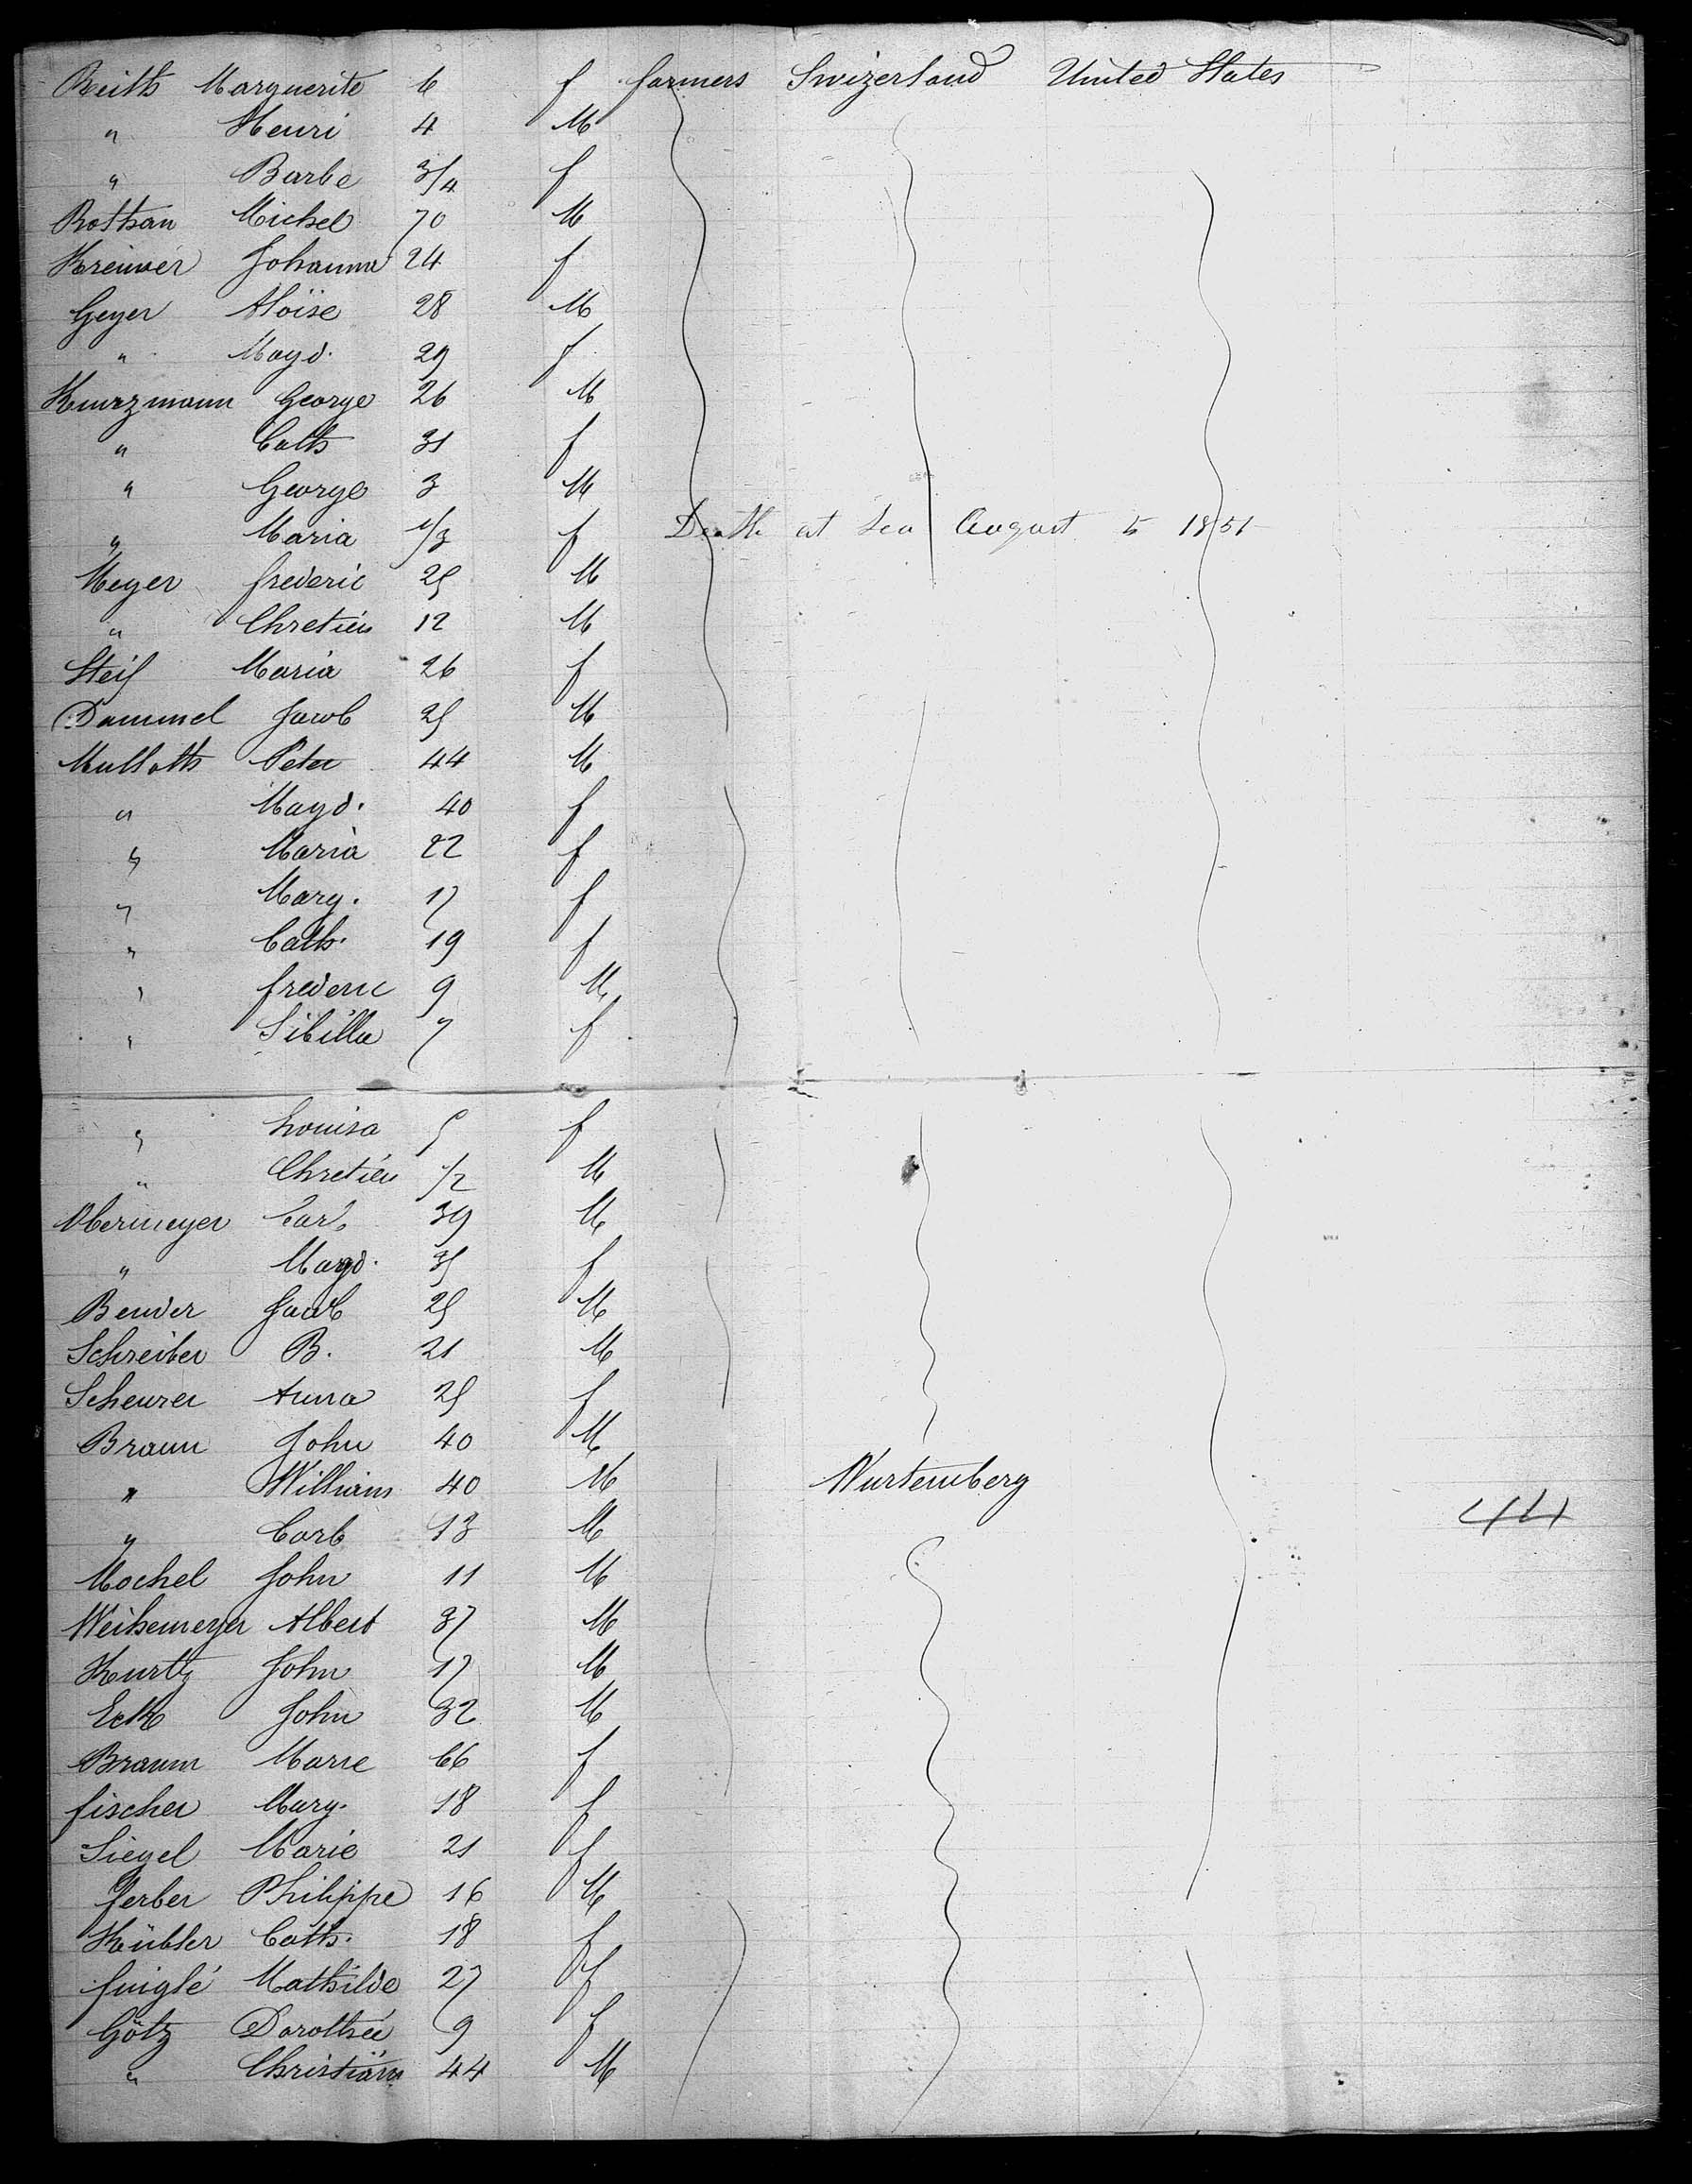 Reith Marguerite 6 f farmers Swizerland United States
" Henri 4 M
" Barbe 3/4 f
Rothan Michel 70 M
Johanna 24 f
Geyer Aloïse 28 M
" Magd. 29 f
Kurzmann George 26 M
" Cath 31 f
" George 3 M
" Maria 1/3 f Death at Sea August 5 1851
Meyer frederic 25 M
" Chretien 12 M
Maria 26 f
Dammel Jacob 25 M
Mulloth Peter 44 M
" Magd. 40 f
" Maria 22 f
" Marg. 17 f
" Cath. 19 f
" frederic 9 M
" Sibilla 7 f
" Louisa 5 f
" Chretien 1/2 M
Obermeyer Carl 39 M
" Magd. 35 f
Bender Jacob 25 M
Schreiber B. 21 M
Scheurer Anna 25 f
Braun John 40 M
" William 40 M Wurtemberg
" Carl 13 M 44
Mochel John 11 M
Weihemeyer Albert 37 M
Kurtz John 17 M
Eck John 32 M
Braun Marie 66 f
fischer Marg. 18 f
Siegel Marie 21 f
ferber Philippe 16 M
Kübler Cath. 18 f
Mathilde 27 f
Götz Dorothée 9 f
" Christian 44 M